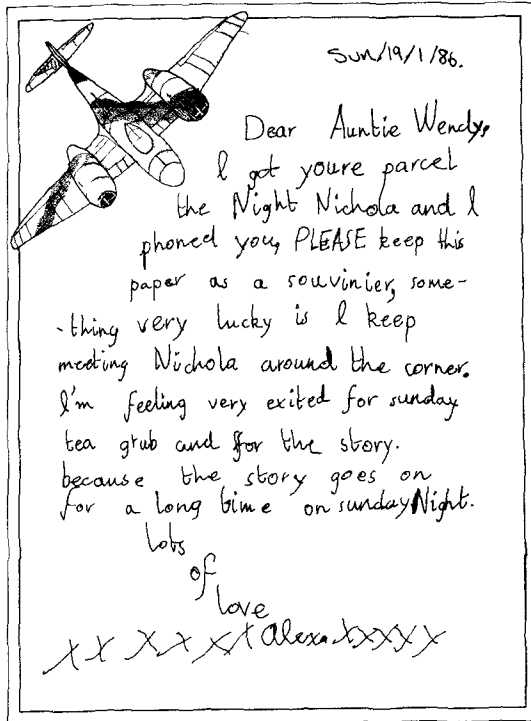 Sun/19/1/86.
Dear Auntie Wendy,
I got youre parcel
the Night Nichola and I
phoned you, PLEASE keep this
paper as a souvinier, some-
-thing very lucky is I keep
meeting Nichola around the corner.
I'm feeling very exited for sunday
tea grub and for the story.
because the story goes on
for a long time on sunday Night.
lots
of
love
X X X X X X Alexa X X X X X